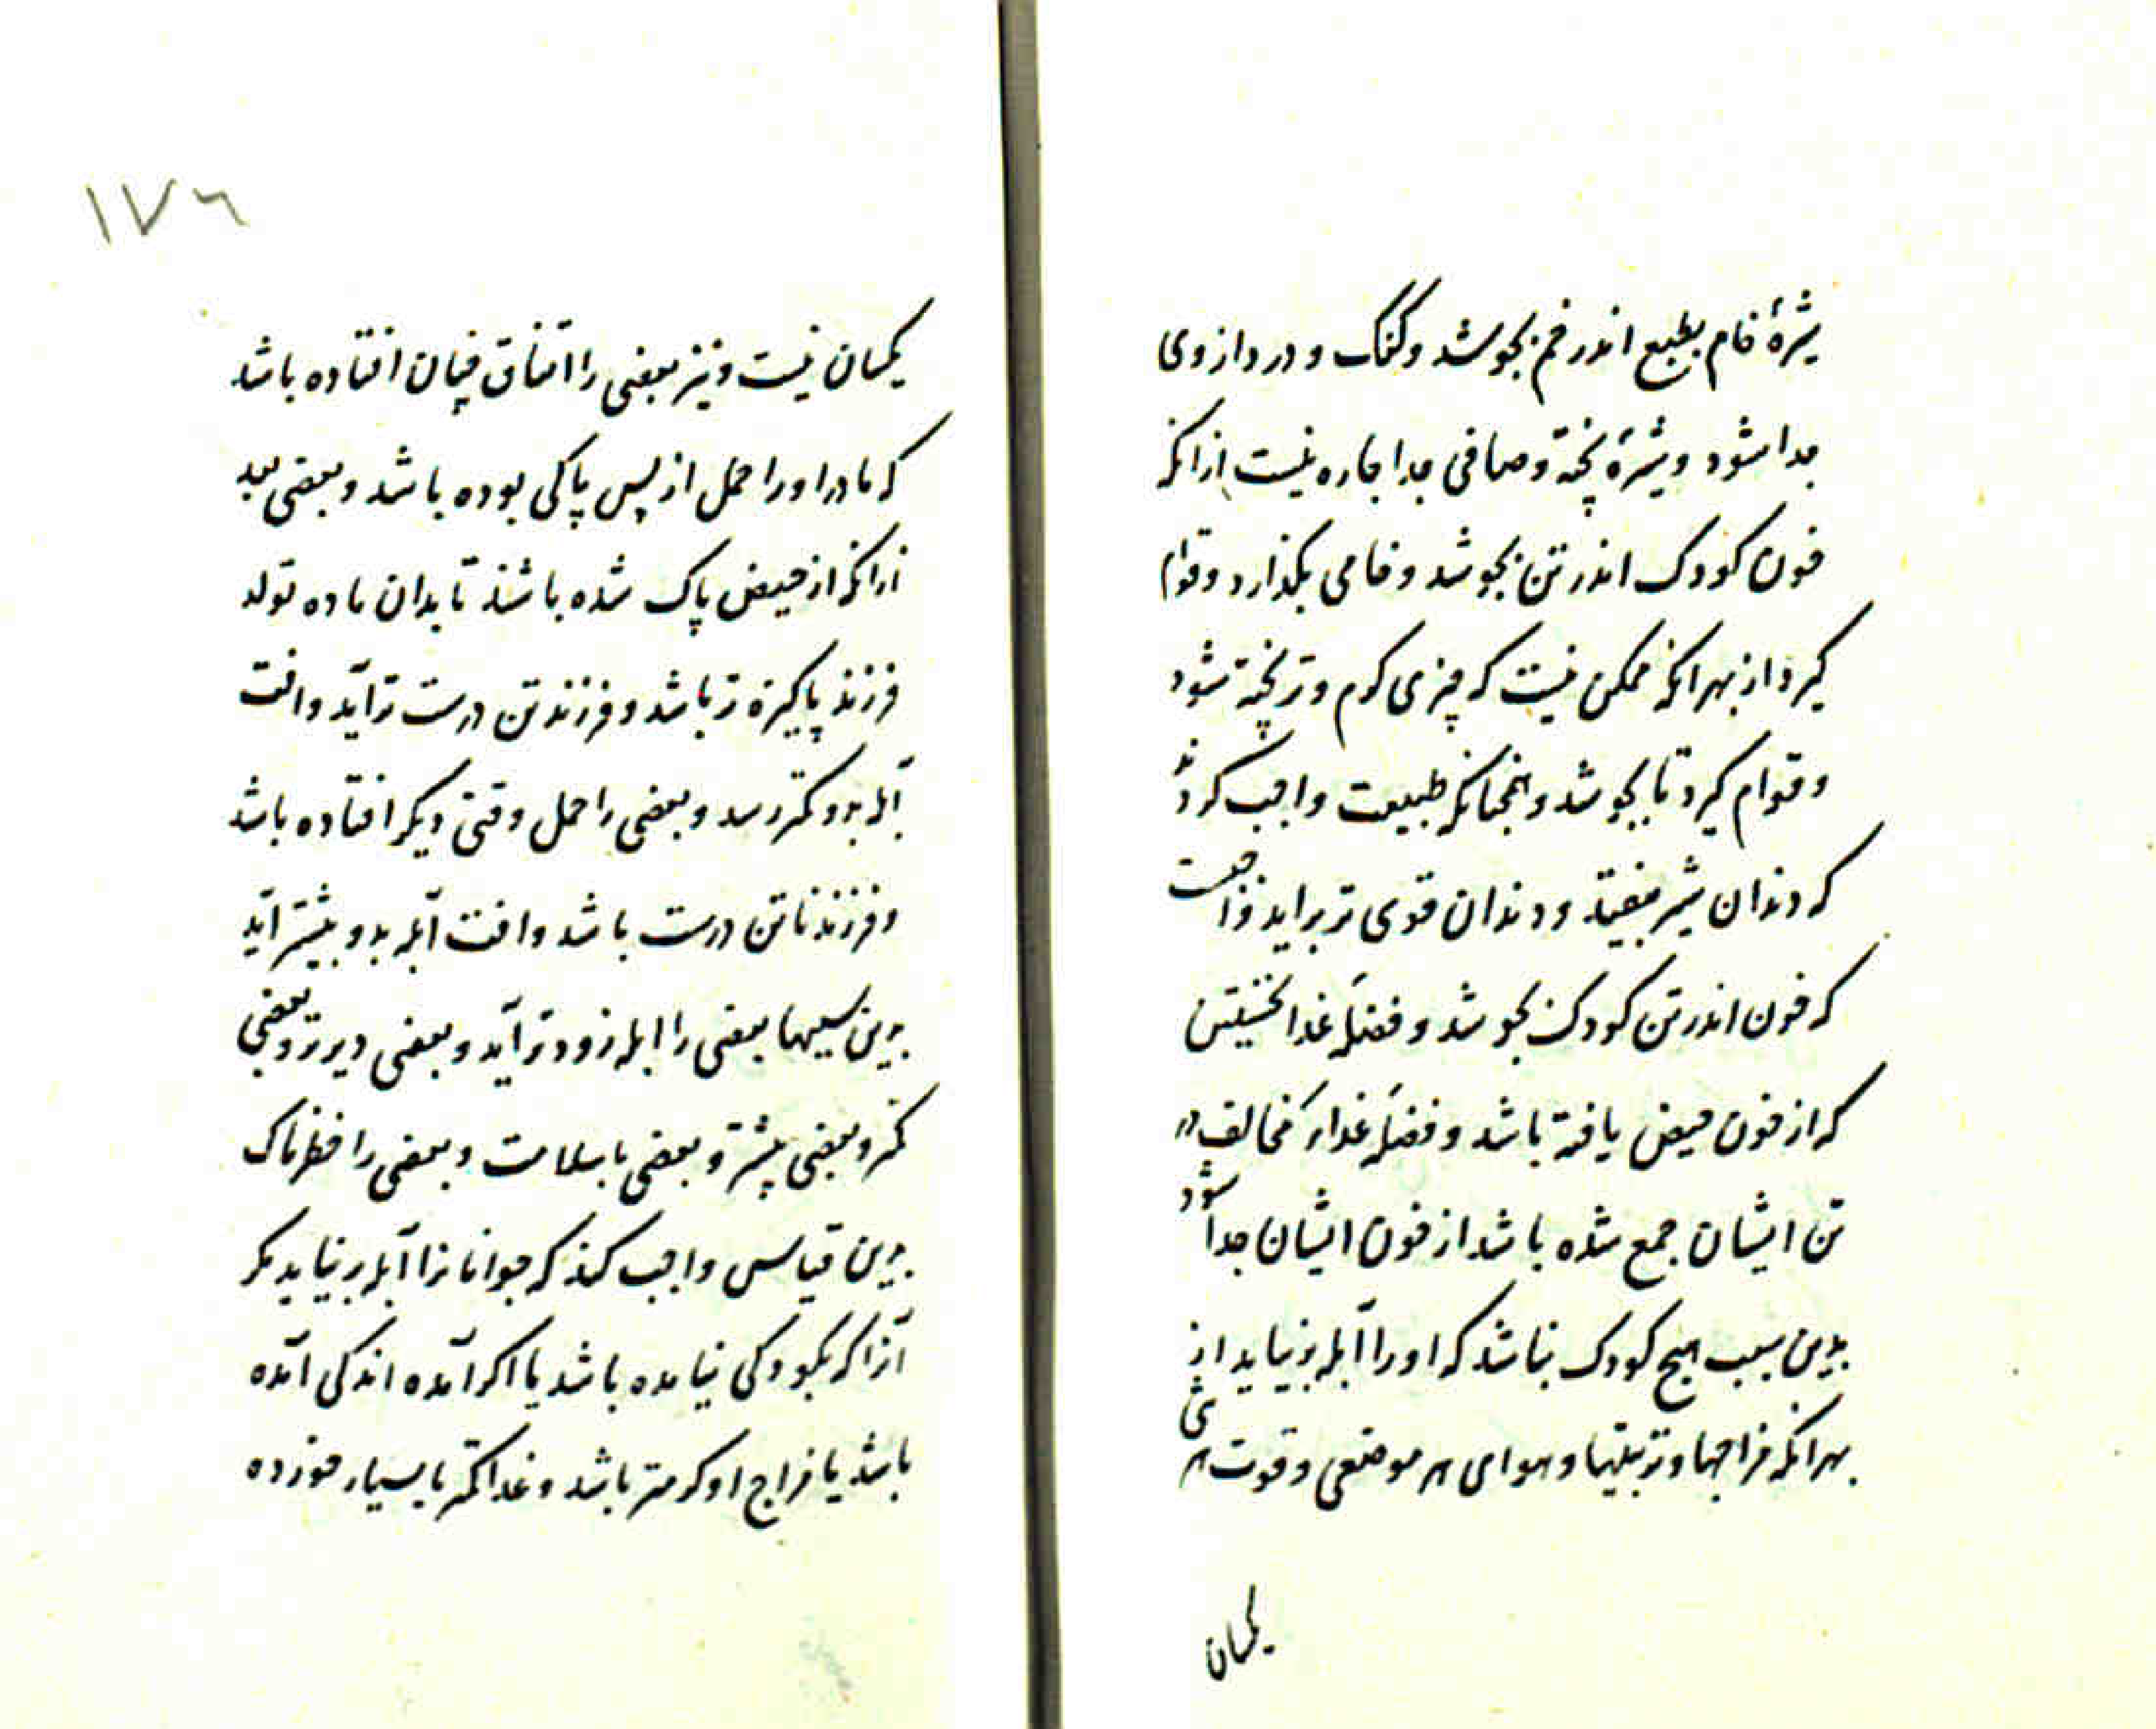 شیرهٔ خام بطبع اندر خم بجوشد و کفک و درد از وی
جدا شود و شیرهٔ پخته و صافی جدا چاره نیست ازانکه
خون کودک اندر تن بجوشد و خامی بگذارد و قوام
کیرد از بهر انکه ممکن نیست که چیزی کرم و تر پخته شود
و قوام کیرد تا بجوشد و همچنانکه طبیعت واجب کردند
که دندان شیر بیفتد و دندان قوی تر براید واجبست
که خون اندر تن کودک بجوشد و فضله غدا نخستین
که از خون حیض یافته باشد و فضله غداء مخالف در
تن ایشان جمع شده باشد از خون ایشان جدا شود
بدین سبب هیچ کودک نباشد که او را آبله برنیاید از
بهر انکه مزاجها و تربیتها و هوای هر موضعی و قوت هر شی
یکسان
۱۷۶
یکسان نیست و نیز بعضی را اتفاق چنان افتاده باشد
که مادر اورا حمل از پس پاکی بوده باشد و بعضی بعد
ازانکه از حیض پاک شده باشند تا بدان ماده تولد
فرزند پاکیزه تر باشد و فرزند تن درست تر آید و افت
آبله بدو کمتر رسد و بعضی را حمل وقتی دیکر افتاده باشد
و فرزند ناتن درست باشد و افت آبله بدو بیشتر آید
بدین سببها بعضی را ابله زودتر آید و بعضی دیرتر و بعضی
کمتر و بعضی بیشتر و بعضی با سلامت و بعضی را خطرناک
بدین قیاس واجب کند که جوانانرا آبله برنیاید مکر
آنرا که بکودکی نیامده باشد یا اکر آمده اندکی آمده
باشد یا مزاج او کرمتر باشد و غدا کمتر یا بسیار خورده